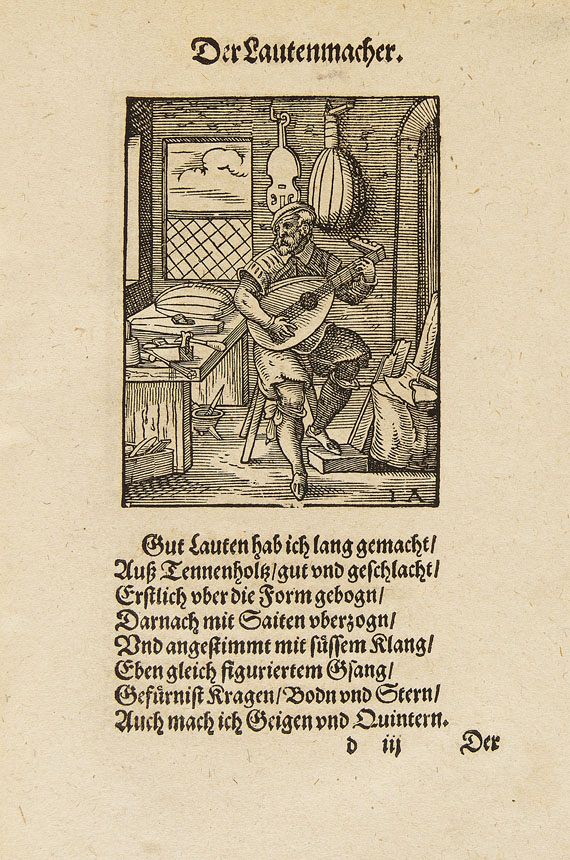 Der Lautenmacher.
I A
Gut Lauten hab ich lang gemacht/
Auß Tennenholtz/gut vnd geschlacht/
Erstlich vber die Form gebogn/
Darnach mit Saiten vberzogn/
Vnd angestimmt mit süssem Klang/
Eben gleich figuriertem Gsang/
Gefürnist Kragen/Bodn vnd Stern/
Auch mach ich Geigen vnd Quintern.
d iij Der